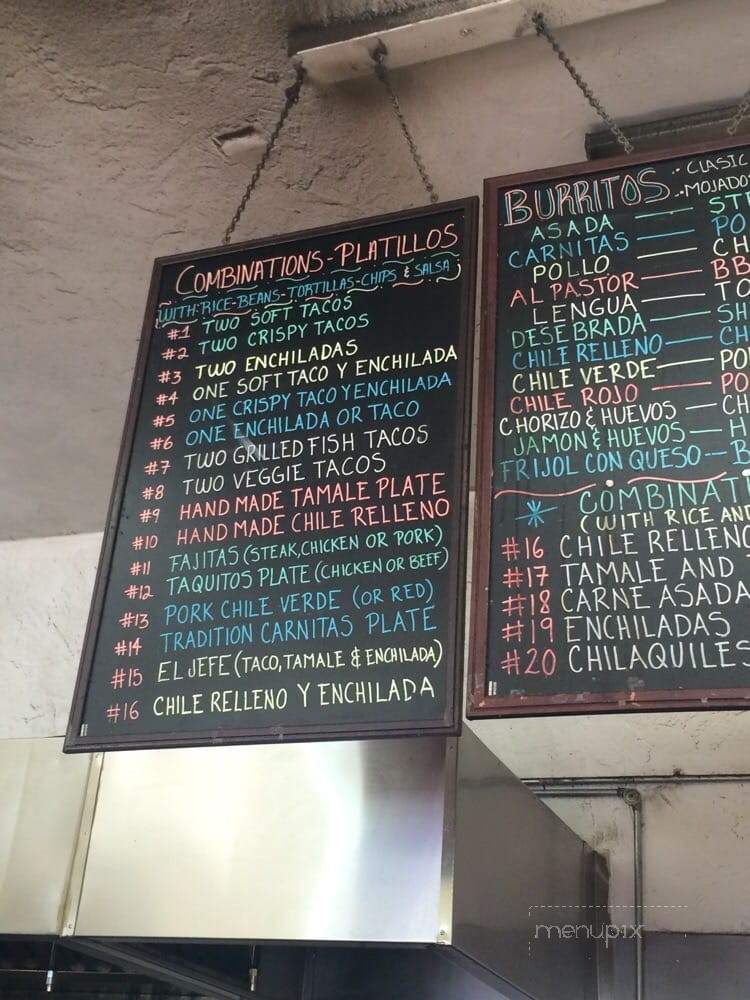 COMBINATIONS-PLATILLOS
WITH: RICE-BEANS-TORTILLAS-CHIPS & SALSA
#1 TWO SOFT TACOS
#2 TWO CRISPY TACOS
#3 TWO ENCHILADAS
#4 ONE SOFT TACO Y ENCHILADA
#5 ONE CRISPY TACO Y ENCHILADA
#6 ONE ENCHILADA OR TACO
#7 TWO GRILLED FISH TACOS
#8 TWO VEGGIE TACOS
#9 HAND MADE TAMALE PLATE
#10 HAND MADE CHILE RELLENO
#11 FAJITAS (STEAK, CHICKEN OR PORK)
#12 TAQUITOS PLATE (CHICKEN OR BEEF)
#13 PORK CHILE VERDE (OR RED)
#14 TRADITION CARNITAS PLATE
#15 EL JEFE (TACO, TAMALE & ENCHILADA)
#16 CHILE RELLENO Y ENCHILADA
BURRITOS
ASADA
CARNITAS
POLLO
AL PASTOR
LENGUA
DESEBRADA
CHILE RELLENO
CHILE VERDE
CHILE ROJO
CHORIZO & HUEVOS
JAMON & HUEVOS
FRIJOL CON QUESO
(WITH RICE
#16 CHILE RELLENO
#17 TAMALE AND
#18 CARNE ASADA
#19 ENCHILADAS
#20 CHILAQUILES
menupix